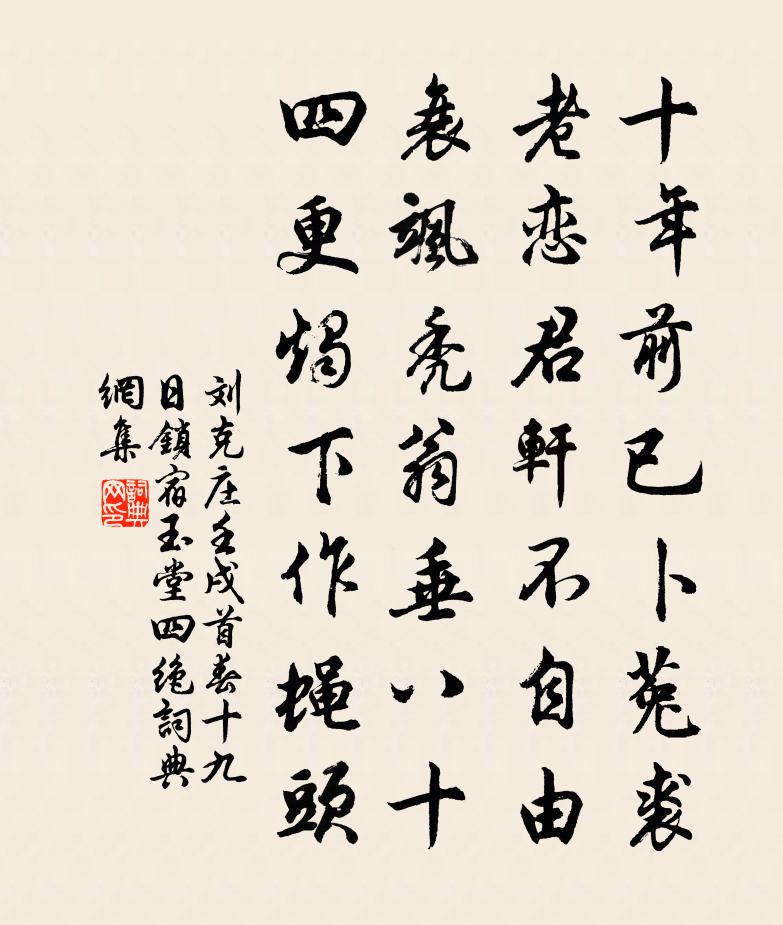 十年前已卜菟裘
老恋君軒不自由
衰颯秃翁垂八十
四更燭下作蝇頭
刘克庄壬戌首春十九
日鎖宿玉堂四绝詞典
網集
詞典网印